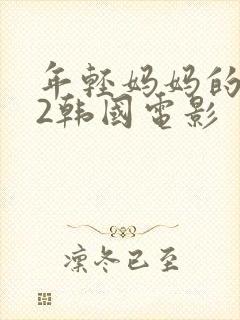 年轻妈妈的
2韩国电影
凛冬已至